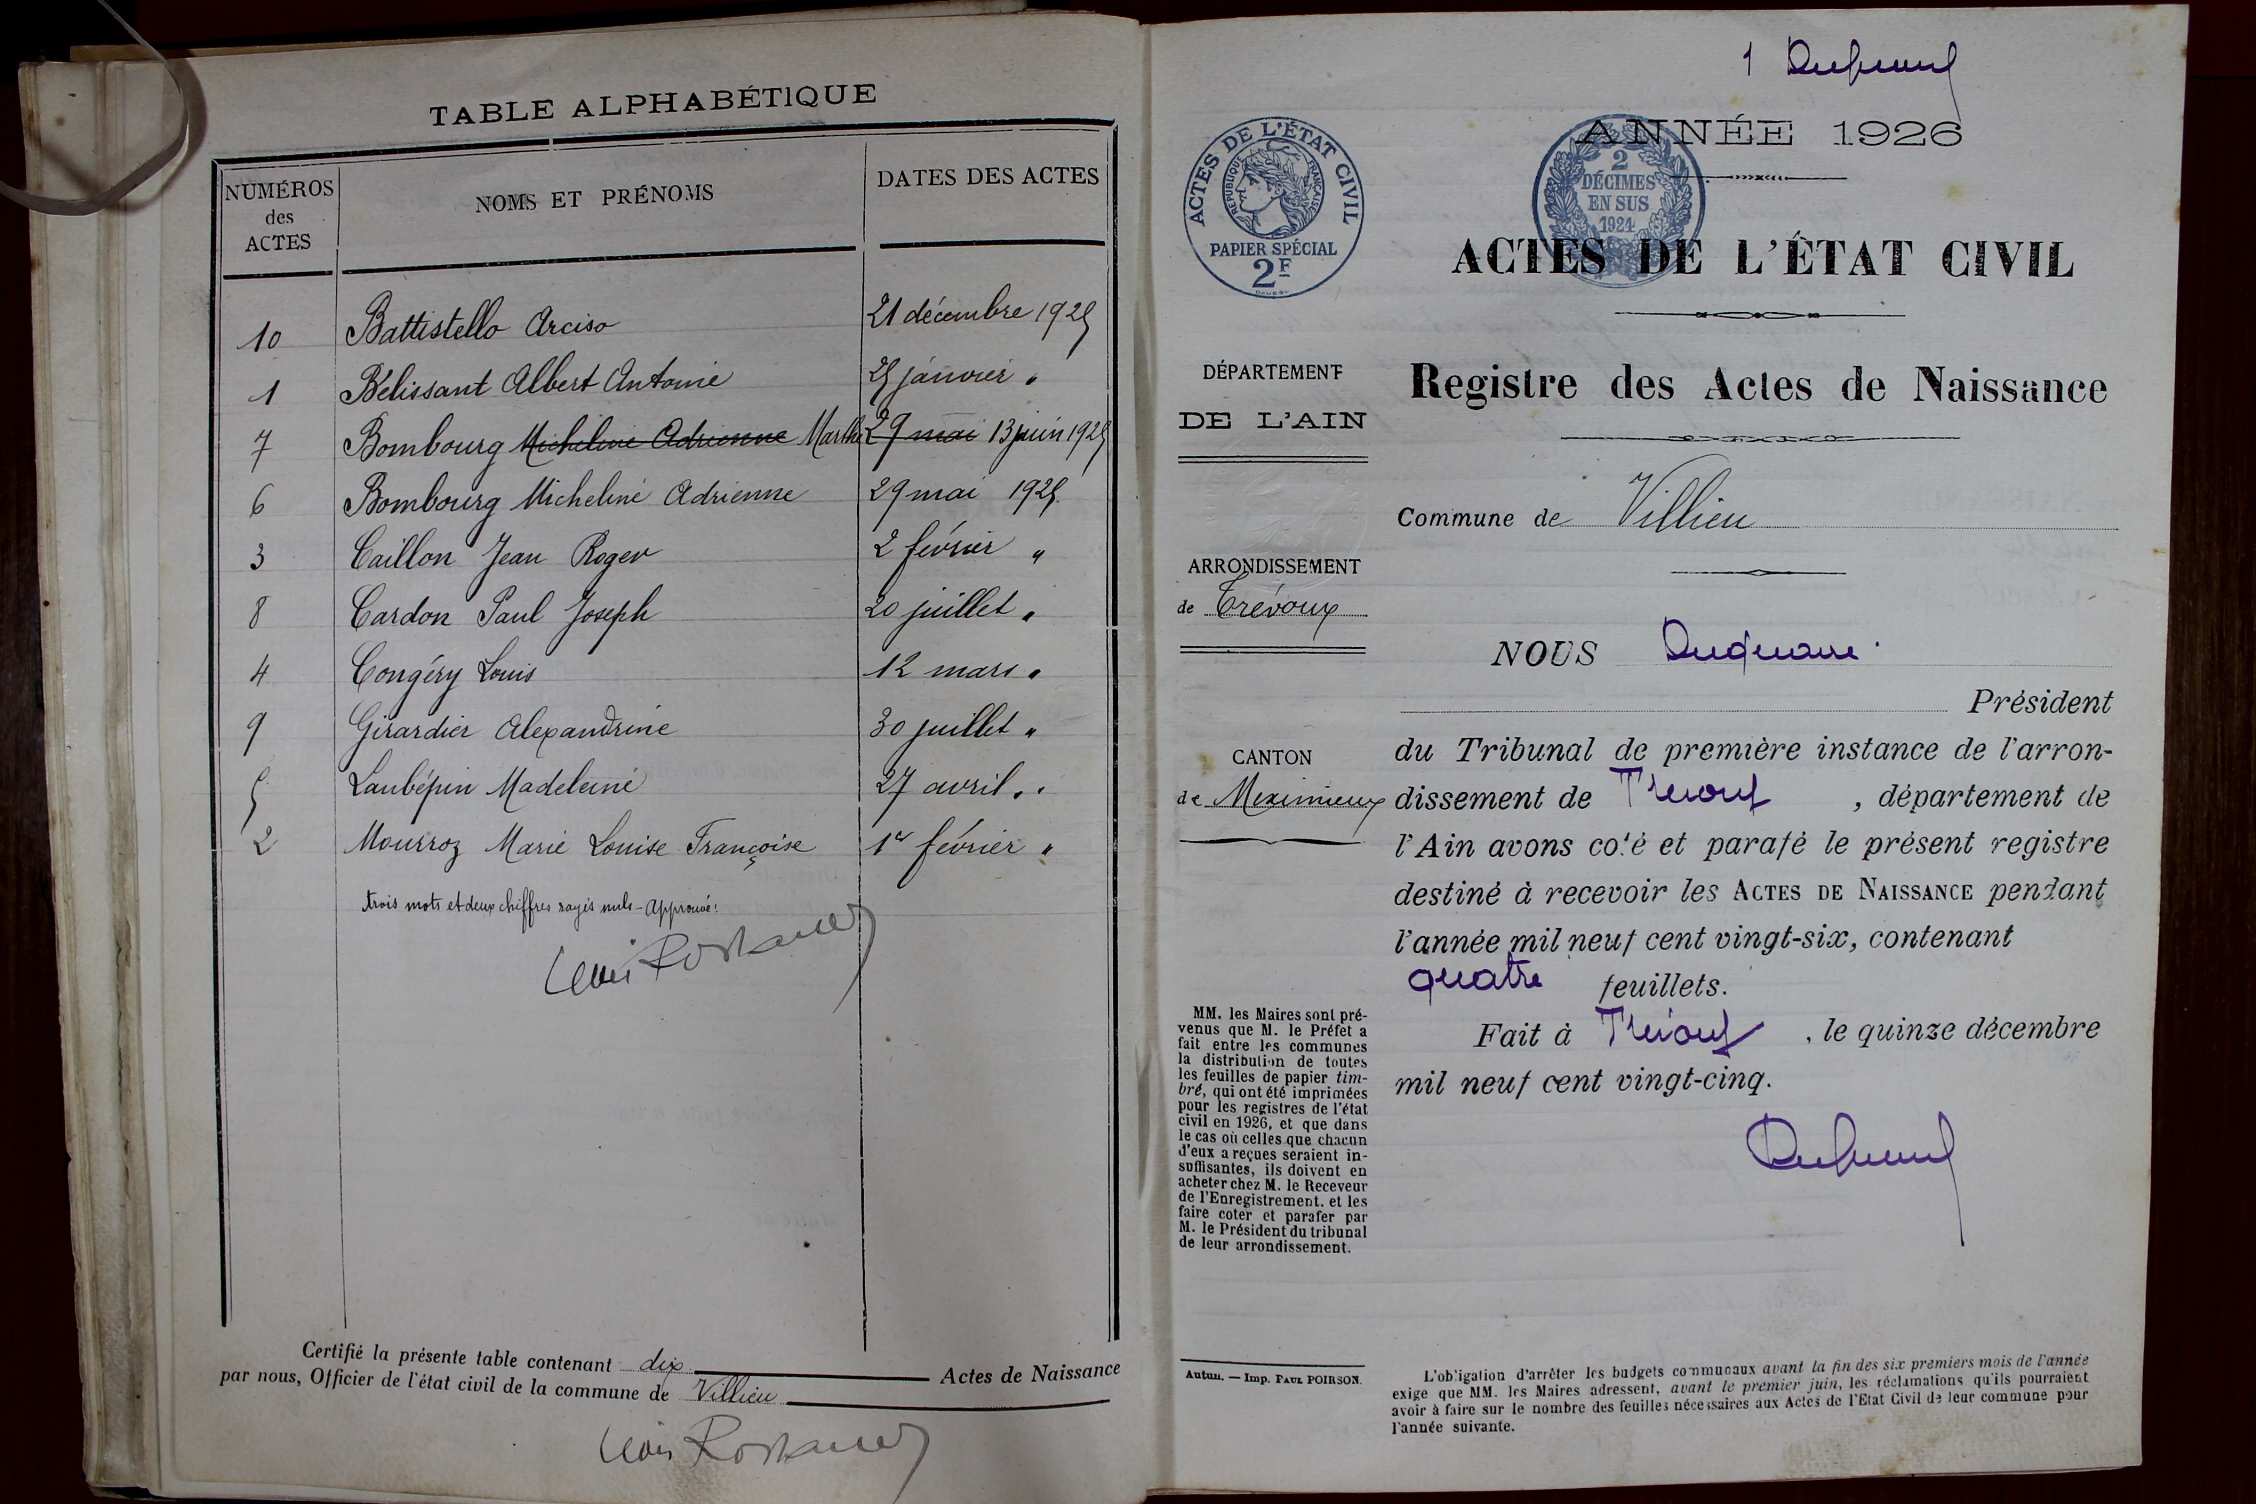 TABLE ALPHABÉTIQUE
NUMÉROS des ACTES
NOMS ET PRÉNOMS
DATES DES ACTES
10 Battistello Arciso 21 décembre 1925
1 Bélissant Albert Antoine 25 janvier "
7 Bombourg Micheline Adrienne Marthe 29 mai 13 juin 1925
6 Bombourg Micheline Adrienne 29 mai 1925
3 Caillon Jean Roger 2 février "
8 Cardon Paul Joseph 20 juillet "
4 Congéry Louis 12 mars "
9 Girardier Alexandrine 30 juillet "
5 Laubépin Madeleine 27 avril "
2 Mourroz Marie Louise Françoise 1er février "
trois mots et deux chiffres rayés nuls - Approuvé!
Certifié la présente table contenant dix Actes de Naissance
par nous, Officier de l'état civil de la commune de Villieu
1
ANNÉE 1926
ACTES DE L'ÉTAT CIVIL
RÉPUBLIQUE FRANÇAISE
PAPIER SPÉCIAL
2F
2
DÉCIMES
EN SUS
1924
ACTES DE L'ÉTAT CIVIL
DÉPARTEMENT
DE L'AIN
Registre des Actes de Naissance
Commune de Villieu
ARRONDISSEMENT
de Trévoux
CANTON
de Meximieux
NOUS
Président
du Tribunal de première instance de l'arron-
dissement de Trévoux, département de
l'Ain avons coté et parafé le présent registre
destiné à recevoir les ACTES DE NAISSANCE pendant
l'année mil neuf cent vingt-six, contenant
quatre feuillets.
Fait à Trévoux, le quinze décembre
mil neuf cent vingt-cinq.
MM. les Maires sont pré-
venus que M. le Préfet a
fait entre les communes
la distribution de toutes
les feuilles de papier tim-
bré, qui ont été imprimées
pour les registres de l'état
civil en 1926, et que dans
le cas où celles que chacun
d'eux a reçues seraient in-
suffisantes, ils doivent en
acheter chez M. le Receveur
de l'Enregistrement. et les
faire coter et parafer par
M. le Président du tribunal
de leur arrondissement.
Autun. — Imp. PAUL POIRSON.
L'obligation d'arrêter les budgets communaux avant la fin des six premiers mois de l'année
exige que MM. les Maires adressent, avant le premier juin, les réclamations qu'ils pourraient
avoir à faire sur le nombre des feuilles nécessaires aux Actes de l'Etat Civil de leur commune pour
l'année suivante.